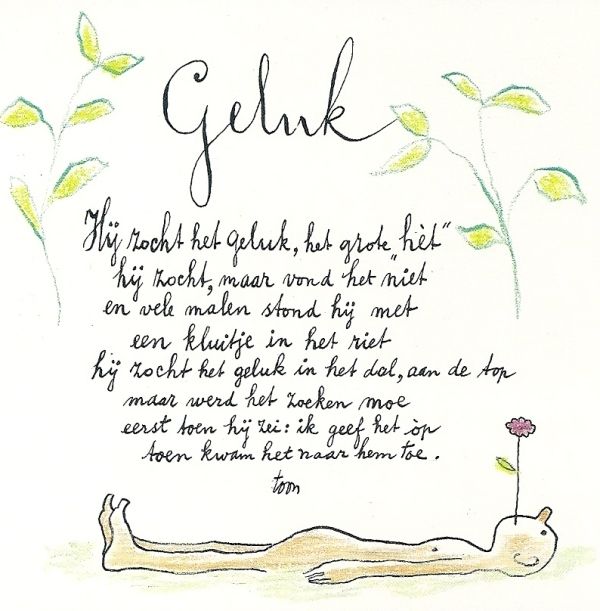 Geluk
Hij zocht het geluk, het grote „hèt"
hij zocht, maar vond het niet
en vele malen stond hij met
een kluitje in het riet
hij zocht het geluk in het dal, aan de top
maar werd het zoeken moe
eerst toen hij zei: ik geef het òp
toen kwam het naar hem toe.
toon